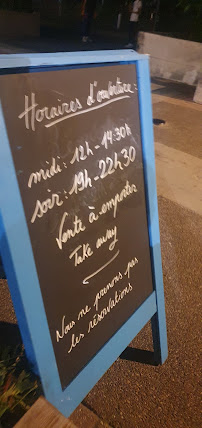 Horaires d'ouverture
midi : 12h - 14:30h
soir : 19h - 22h30
Vente à emporter
Take away
Nous ne prenons pas
les réservations